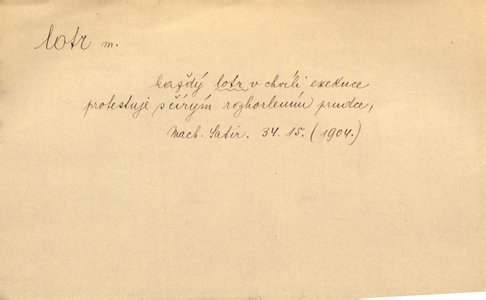 lotr m.
každý lotr v chvíli exekuce
protestuje s čirým rozhorlením prudce,
Mach. Satir. 34. 15. (1904.)